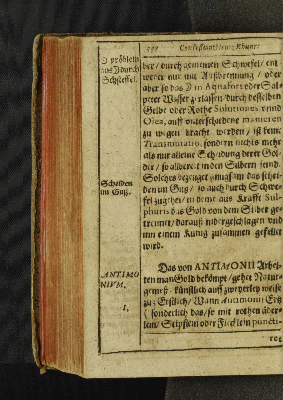 Confessiani
ber / durch gemeinen Schwefel / ent
weder nur mit Außbrennung / oder
aber so das ☽ in Aquafort oder Sal-
peter Wasser zulassen / durch desselben
Gelbe oder Rothe Solutiones unnd
Olea, auff unterschiedene manieren
zu wegen bracht werden / ist keine
Transmutatio, sondern nichts mehr
als nur alleine Scheidung deren Gol-
der / so allbereit in den Silbern seind.
Solches bezeuget gnugsam das schei-
den im Guß / so auch durch Schwe-
fel zugehet / in deme aus Krafft Sul-
phuris das Gold von dem Silber ge-
trennet / darauß nidergeschlagen und
inn einem Künig zusammen gesetzet
wird.
Scheiden
im Guß.
Das von ANTIMONII Arbei-
ten man Gold bekömpt / gehet Natur-
gemeß künstlich auff zweyerley weise
zu: Erstlich / Wann Antimonii Ertz
( sonderlich das / so mit rothen äder-
lein / Striplein oder Flecklein puncti-
ANTIMO
NIUM.
1.